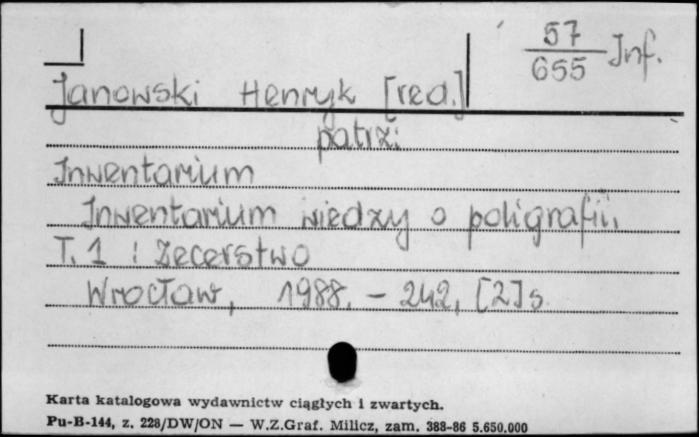 57
655 Inf.
Janowski Henryk [red.]
patrz:
Inwentarium
Inwentarium wiedzy o poligrafii.
T. 1 : Zecerstwo
Wrocław, 1988. - 242, [2] s.
Karta katalogowa wydawnictw ciągłych i zwartych.
Pu-B-144, z. 228/DW/ON — W.Z.Graf. Milicz, zam. 388-86 5.650.000